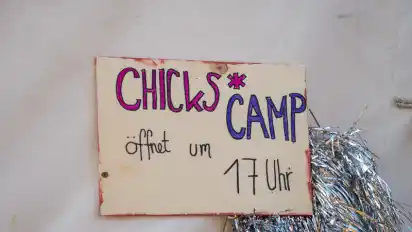 CHICKS*
CAMP
öffnet um
17 Uhr